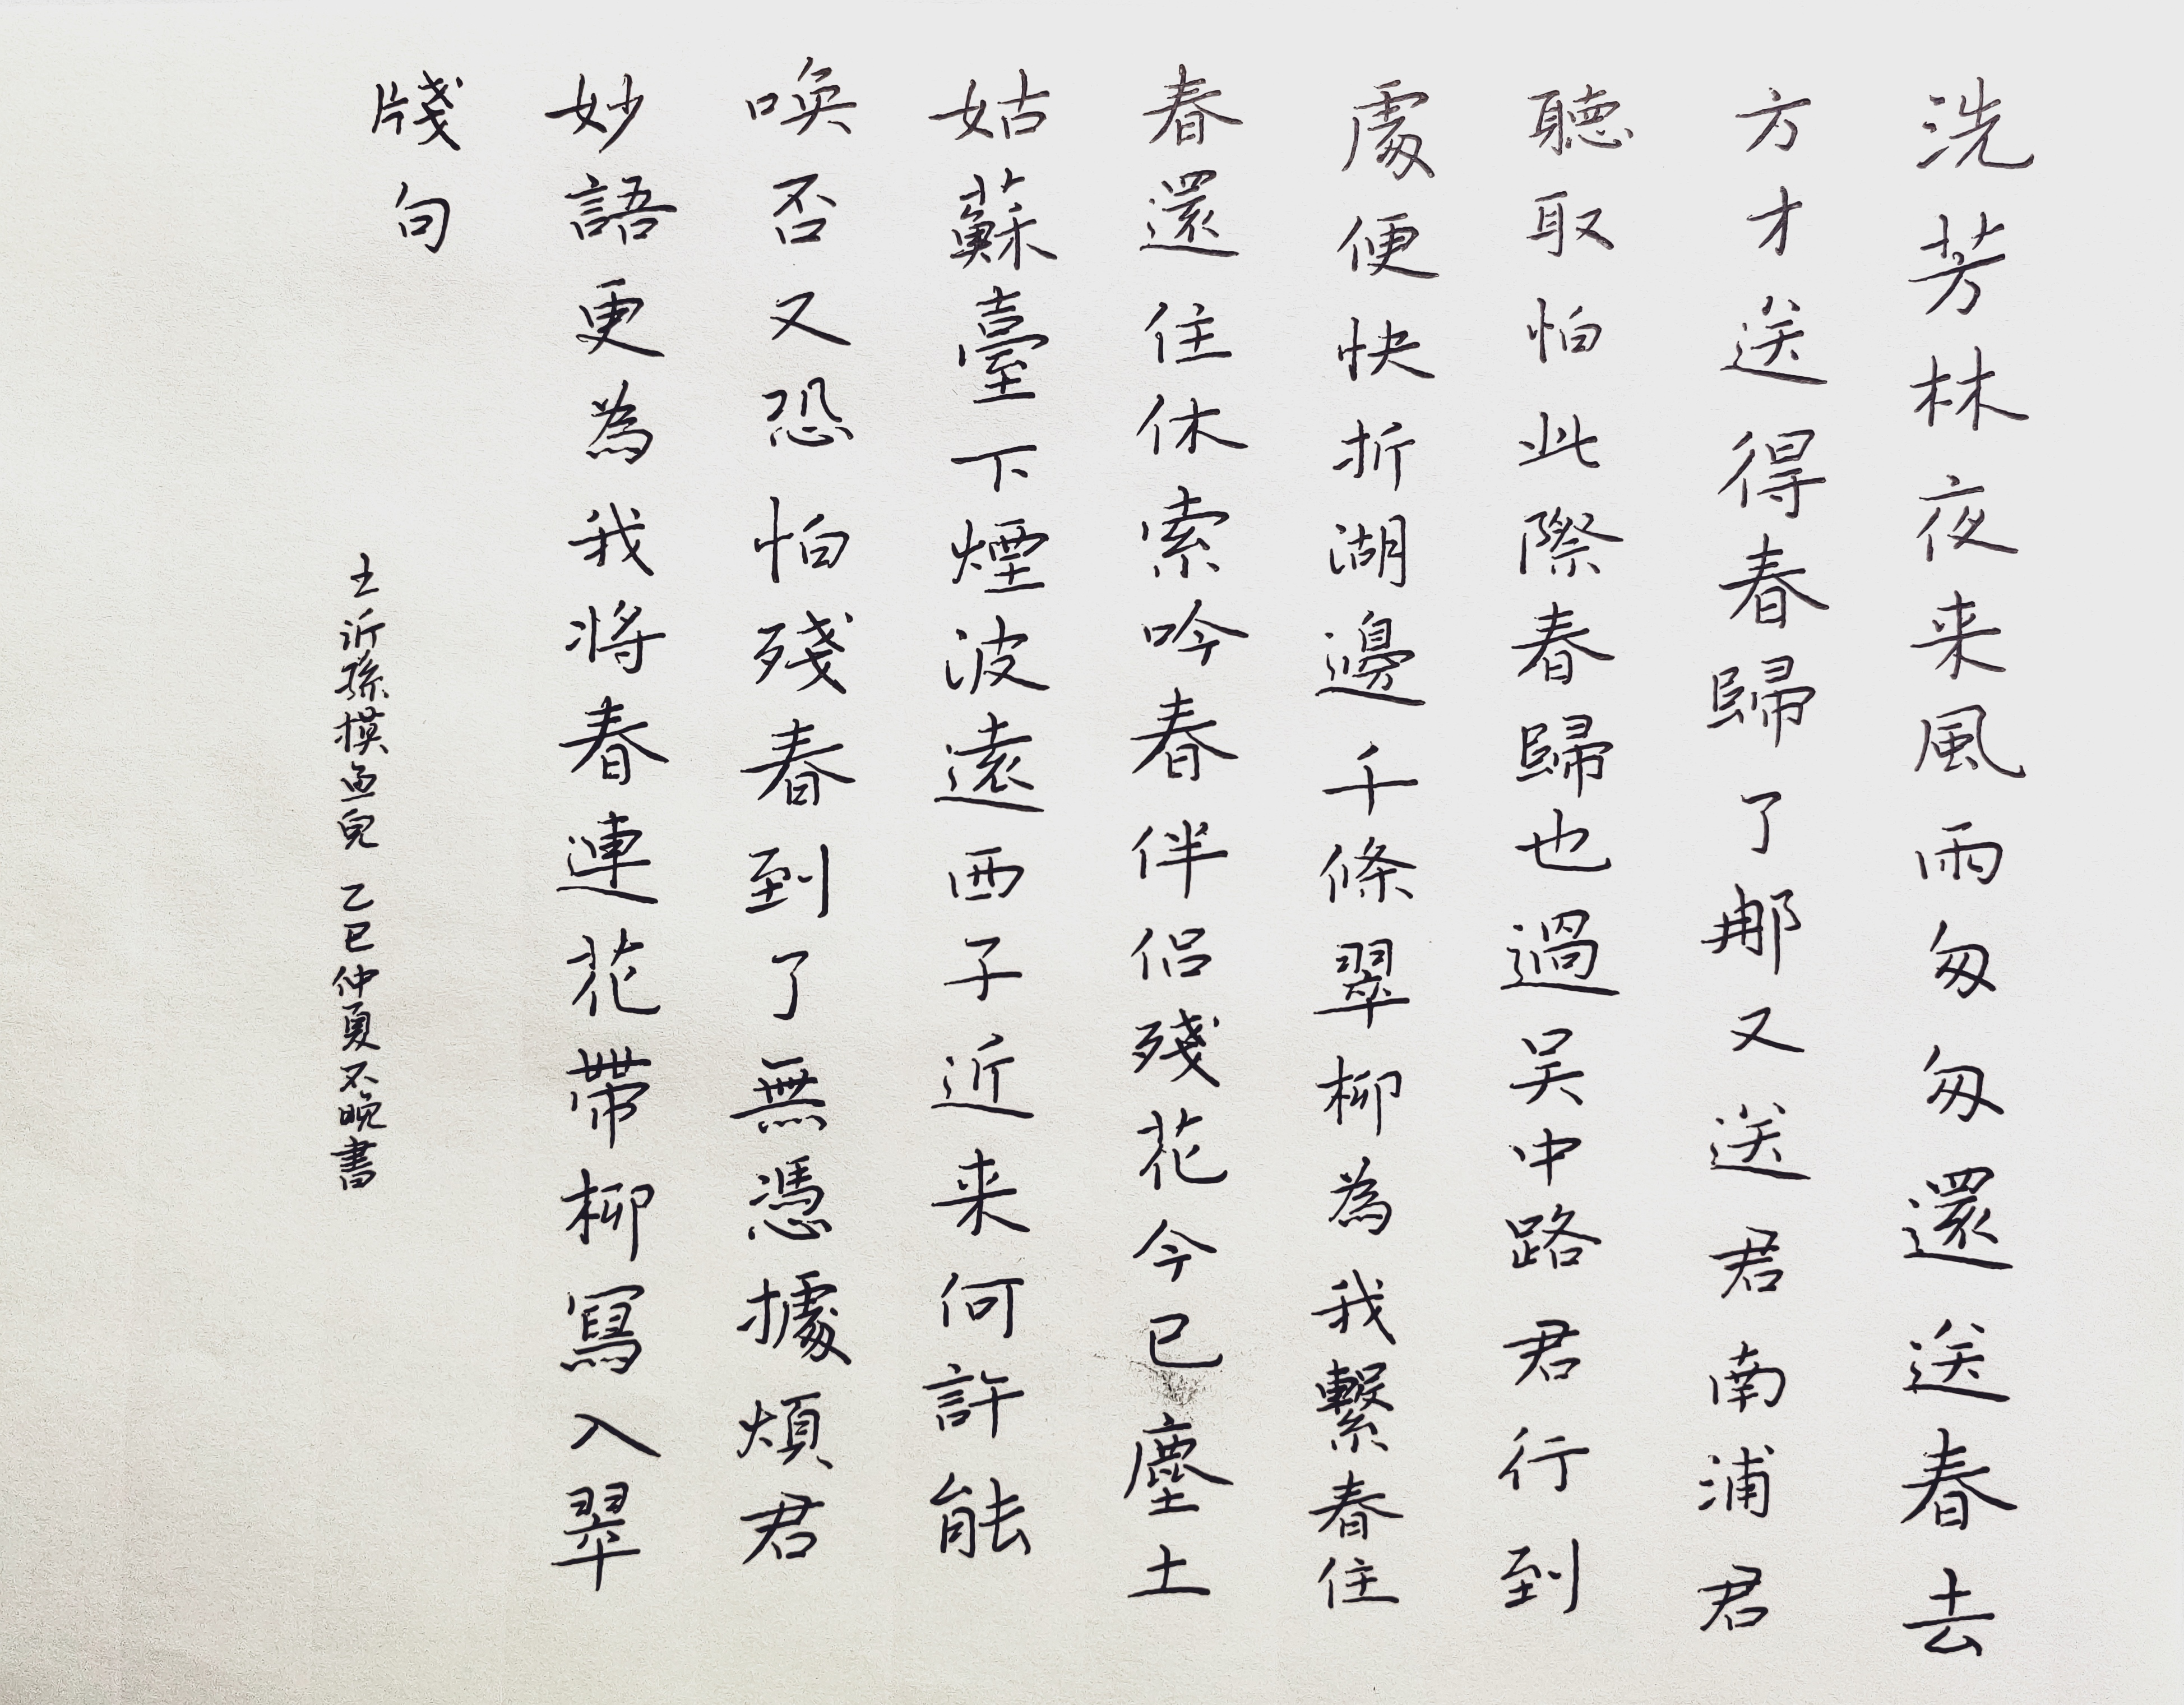 洗芳林夜来風雨匆匆還送春去
方才送得春歸了那又送君南浦君
聽取怕此際春歸也過吴中路君行到
處便快折湖邊千條翠柳為我繫春住
春還住休索吟春伴侣殘花今已塵土
姑蘇臺下煙波遠西子近来何許能
喚否又恐怕殘春到了無憑據煩君
妙語更為我將春連花帶柳寫入翠
牋句
王沂孫摸魚兒 乙巳仲夏不晚書